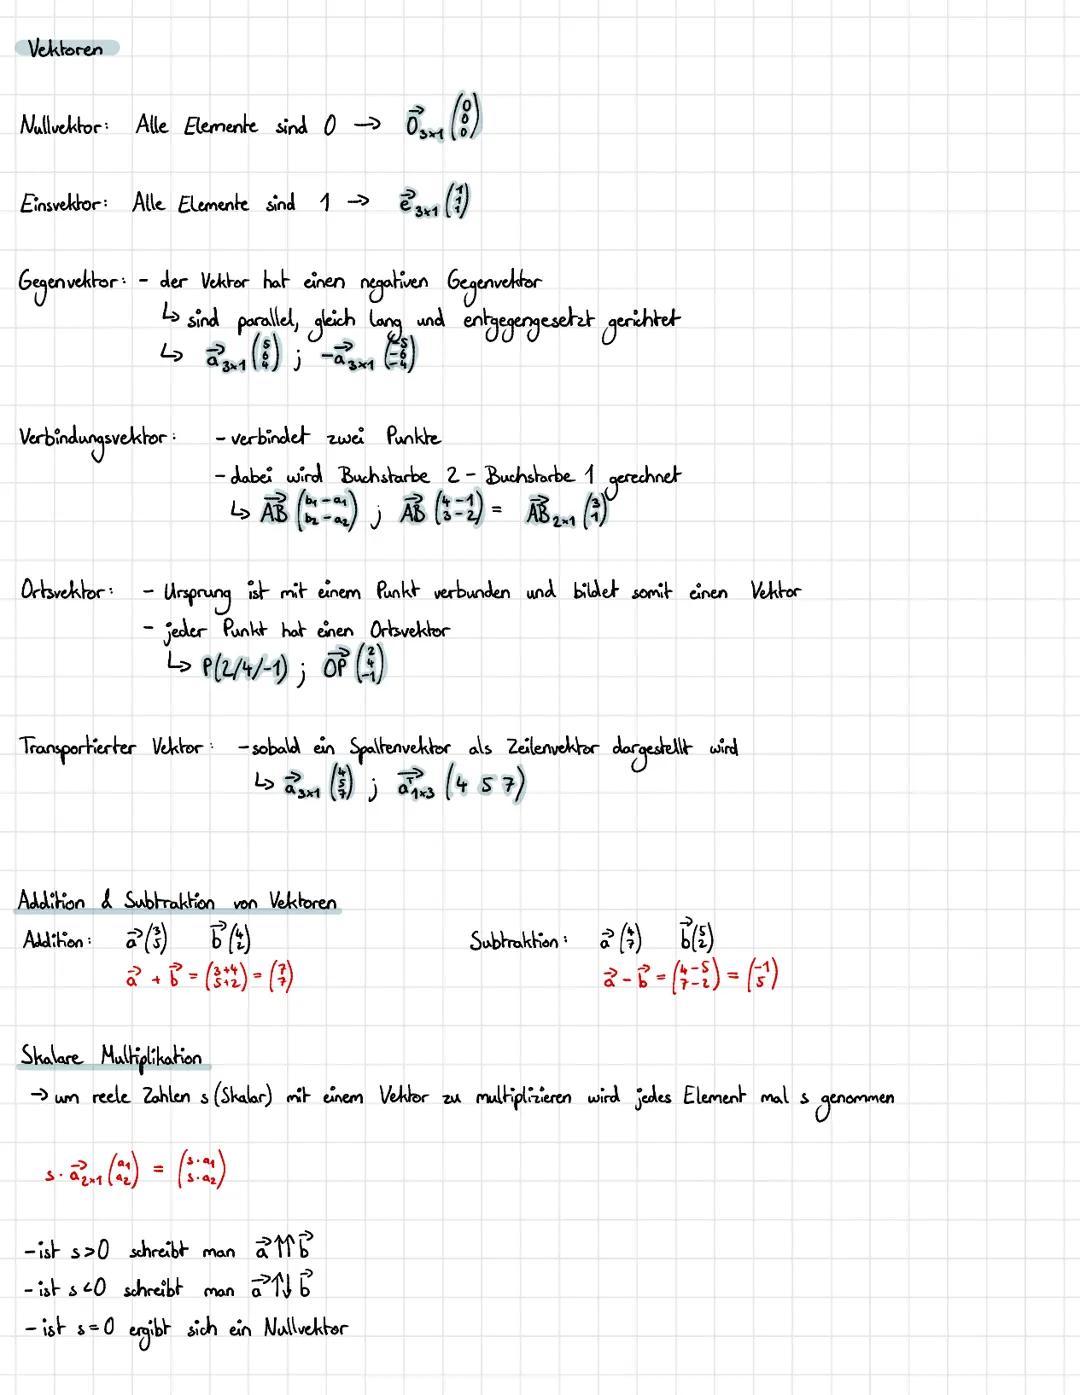 Vektoren
Nullvektor: Alle Elemente sind 0 → $\vec{0}_{3×1} \begin{pmatrix} 0 \\ 0 \\ 0 \end{pmatrix}$
Einsvektor: Alle Elemente sind 1 → $\vec{e}_{3×1} \begin{pmatrix} 1 \\ 1 \\ 1 \end{pmatrix}$
Gegenvektor: - der Vektor hat einen negativen Gegenvektor
↳ sind parallel, gleich lang und entgegengesetzt gerichtet
↳ $\vec{a}_{3×1} \begin{pmatrix} 5 \\ 6 \\ 4 \end{pmatrix}$ ; $-\vec{a}_{3×1} \begin{pmatrix} -5 \\ -6 \\ -4 \end{pmatrix}$
Verbindungsvektor: - verbindet zwei Punkte
- dabei wird Buchstarbe 2 - Buchstarbe 1 gerechnet
↳ $\vec{AB} \begin{pmatrix} b_1 - a_1 \\ b_2 - a_2 \end{pmatrix}$ ; $\vec{AB} \begin{pmatrix} 4-1 \\ 3-2 \end{pmatrix} = \vec{AB}_{2×1} \begin{pmatrix} 3 \\ 1 \end{pmatrix}$
Ortsvektor: - Ursprung ist mit einem Punkt verbunden und bildet somit einen Vektor
- jeder Punkt hat einen Ortsvektor
↳ P(2/4/-1) ; $\vec{OP} \begin{pmatrix} 2 \\ 4 \\ -1 \end{pmatrix}$
Transportierter Vektor: - sobald ein Spaltenvektor als Zeilenvektor dargestellt wird
↳ $\vec{a}_{3×1} \begin{pmatrix} 4 \\ 5 \\ 7 \end{pmatrix}$ ; $\vec{a}^{T}_{1×3} (4\ 5\ 7)$
Addition & Subtraktion von Vektoren
Addition: $\vec{a} \begin{pmatrix} 3 \\ 5 \end{pmatrix}$ $\vec{b} \begin{pmatrix} 4 \\ 2 \end{pmatrix}$
$\vec{a} + \vec{b} = \begin{pmatrix} 3+4 \\ 5+2 \end{pmatrix} = \begin{pmatrix} 7 \\ 7 \end{pmatrix}$
Subtraktion: $\vec{a} \begin{pmatrix} 4 \\ 7 \end{pmatrix}$ $\vec{b} \begin{pmatrix} 5 \\ 2 \end{pmatrix}$
$\vec{a} - \vec{b} = \begin{pmatrix} 4-5 \\ 7-2 \end{pmatrix} = \begin{pmatrix} -1 \\ 5 \end{pmatrix}$
Skalare Multiplikation
→ um reele Zahlen s (Skalar) mit einem Vektor zu multiplizieren wird jedes Element mal s genommen
$s \cdot \vec{a}_{2×1} \begin{pmatrix} a_1 \\ a_2 \end{pmatrix} = \begin{pmatrix} s \cdot a_1 \\ s \cdot a_2 \end{pmatrix}$
- ist s>0 schreibt man $\vec{a}$ ↑↑ $\vec{b}$
- ist s<0 schreibt man $\vec{a}$ ↑↓ $\vec{b}$
- ist s=0 ergibt sich ein Nullvektor